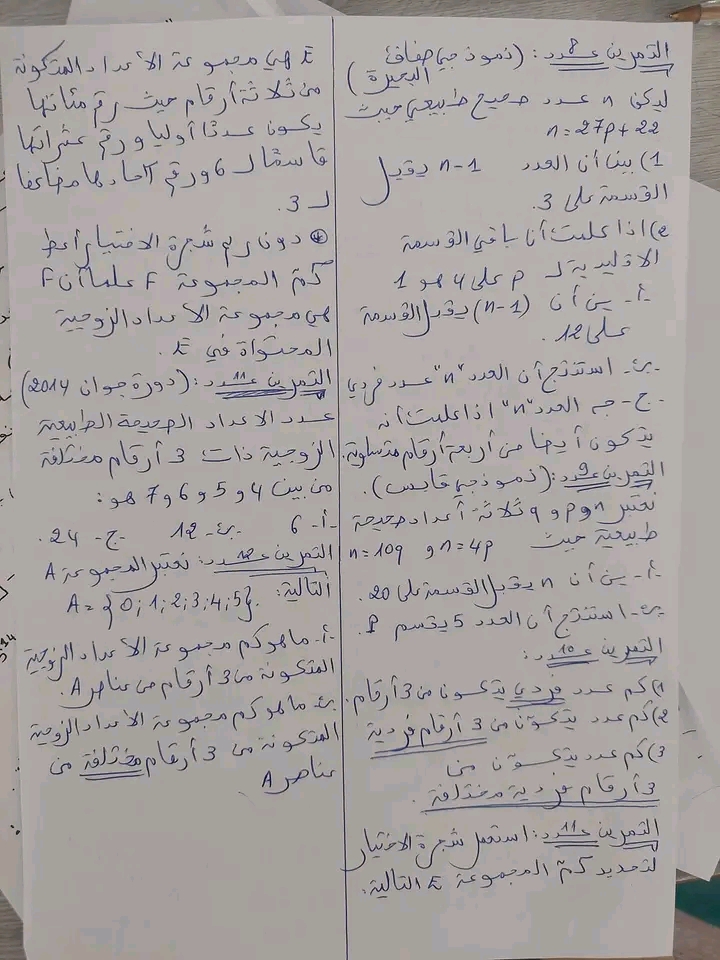 التمرين عدد 8: (نموذجي صفاقس
البحيرة)
ليكن n عدد صحيح طبيعي حيث
n = 27p + 22
1) بين أن العدد n-1 يقبل
القسمة على 3.
2) اذا علمت أن باقي القسمة
الاقليدية لـ p على 4 هو 1
أ- بين أن (n-1) يقبل القسمة
على 12.
ب- استنتج أن العدد "n" عدد فردي
ج- جد العدد "n" اذا علمت أنه
يتكون أيضا من أربعة أرقام متساوية.
التمرين عدد 9: (نموذجي قابس).
نعتبر n و p و q ثلاثة أعداد صحيحة
طبيعية حيث n = 4p و n = 10q
أ- بين أن n يقبل القسمة على 20.
ب- استنتج أن العدد 5 يقسم p.
التمرين عدد 10:
1) كم عدد فردي يتكون من 3 أرقام.
2) كم عدد يتكون من 3 أرقام فردية
3) كم عدد يتكون من
3 أرقام فردية مختلفة.
التمرين عدد 11: استعمل شجرة الاختيار
لتحديد كم المجموعة E التالية:
E هي مجموعة الأعداد المتكونة
من ثلاثة أرقام حيث رقم مئاتها
يكون عددا أوليا و رقم عشراتها
قاسما لـ 6 و رقم آحادها مضاعفا
لـ 3.
* دون رسم شجرة الاختيار أعط
كم المجموعة F علما أن F
هي مجموعة الأعداد الزوجية
المحتواة في E.
التمرين عدد 11: (دورة جوان 2014)
عدد الاعداد الصحيحة الطبيعية
الزوجية ذات 3 أرقام مختلفة
من بين 4 و 5 و 6 و 7 هو:
أ- 6 ب- 12 ج- 24.
التمرين عدد 12: نعتبر المجموعة A
التالية: A = {0; 1; 2; 3; 4; 5}.
أ- ما هو كم مجموعة الأعداد الزوجية
المتكونة من 3 أرقام من عناصر A.
ب- ما هو كم مجموعة الأعداد الزوجية
المتكونة من 3 أرقام مختلفة من
عناصر A